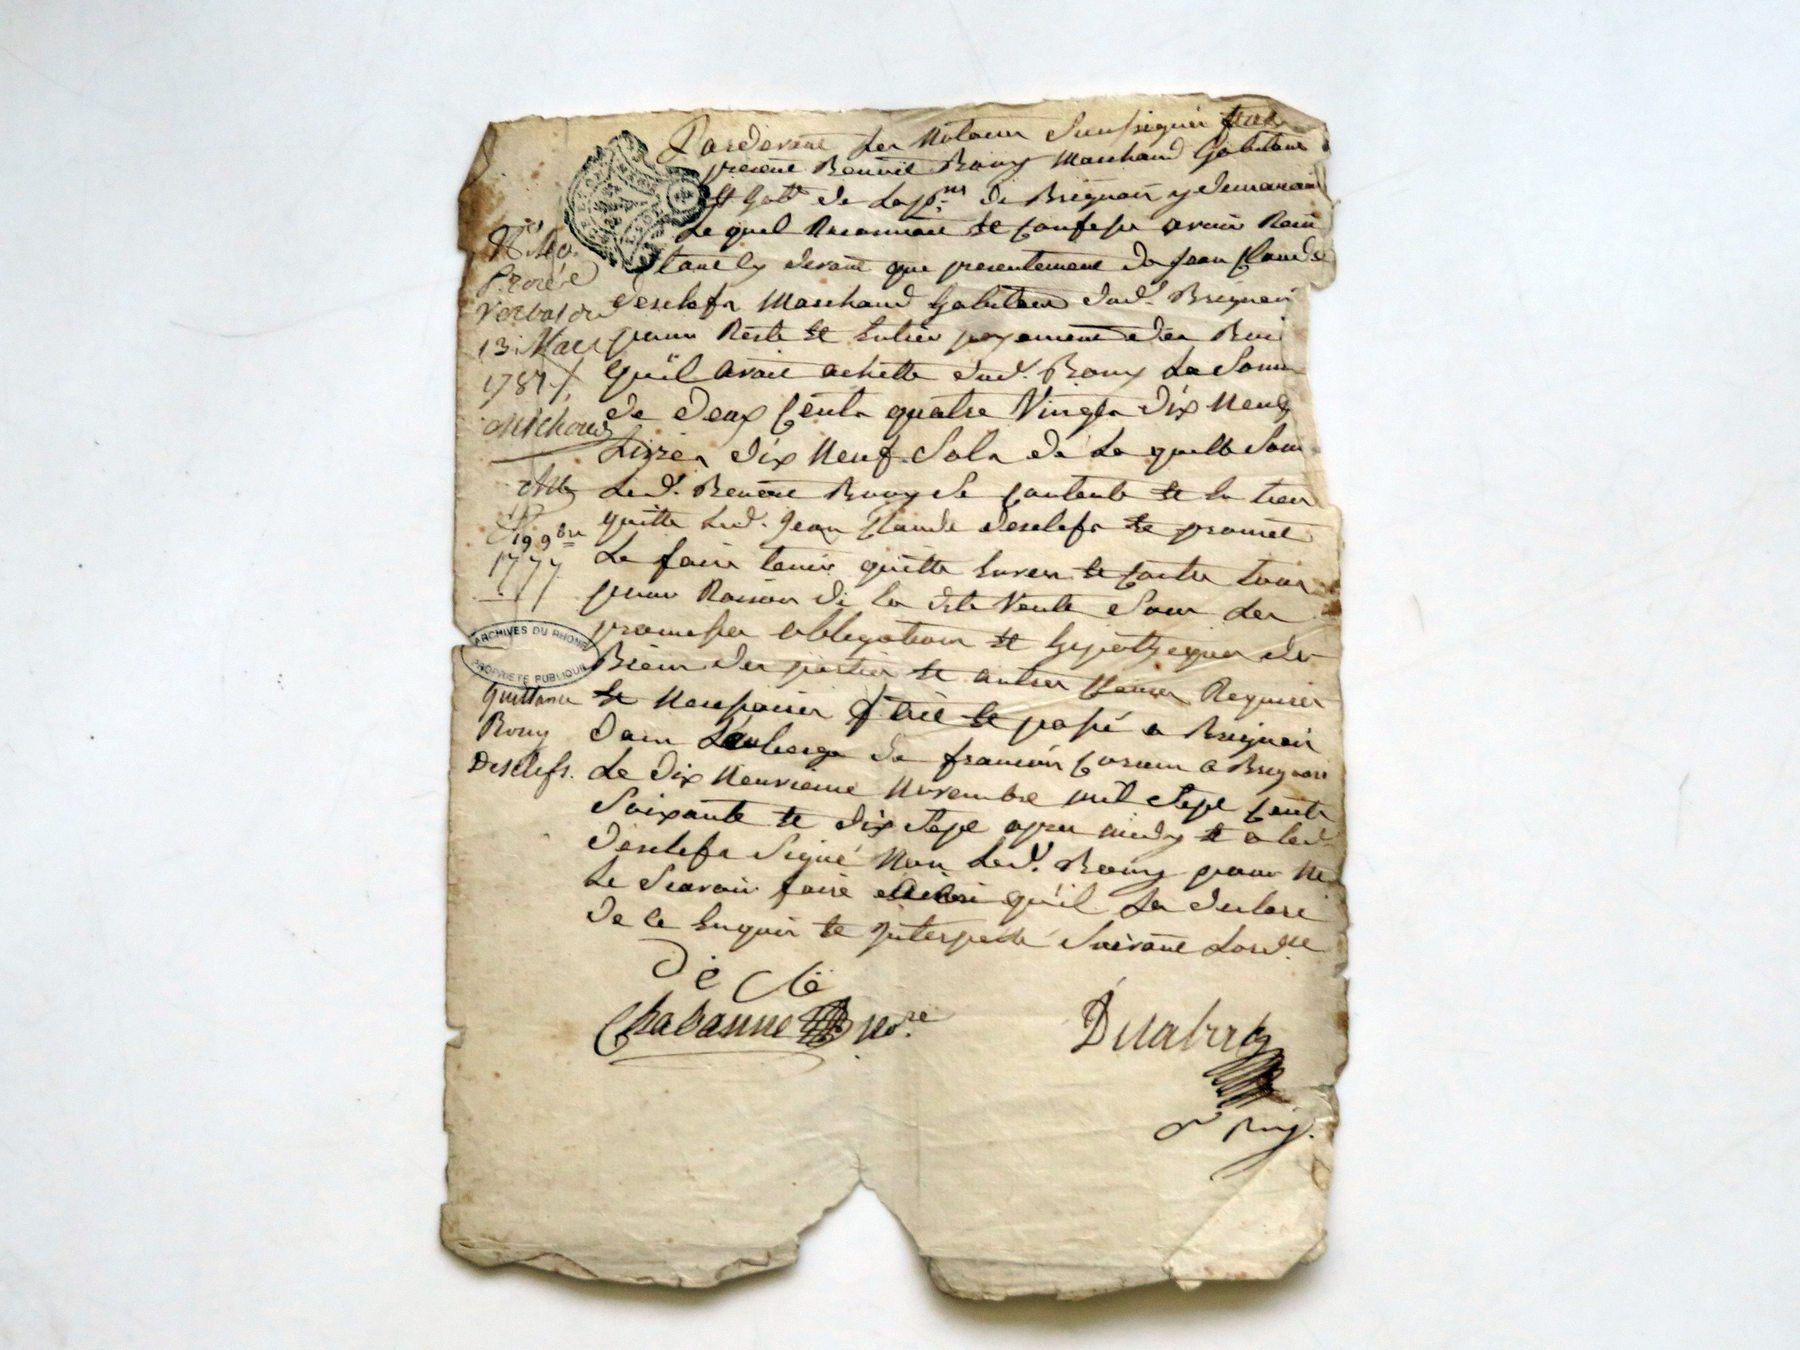 Pardevant les Notaires Soussignés
present Benoit Bouy Marchand habitant
de la p.sse de Brignais y demeurant
Le quel Reconnait et Confesse avoir Recu
tant cy devant que presentement de Jean Claude
desclefs Marchand habitant dud. Brignais
pour Reste et Entier payement des
qu'il avait achetté dud. Bouy La Som
de deux Cents quatre Vingts dix Neuf
Livres dix Neuf Sols de La quelle Som
Led. Benoit Bouy Se Contente et En tien
quitte Led. Jean Claude desclefs et promet
Le faire tenir quitte Envers et Contre tous
pour Raison de la dite Vente Sous Les
promesses obligations et hypotheques de
Biens des parties et autres Clauses Requises
et Necessaires fait et passé a Brignais
dans L'auberge de francois a Brignais
Le dix Neuvieme Novembre mil Sept Cents
Soixante et dix Sept apres midy et a led.
desclefs Signé Non Led. Bouy pour Ne
Le Scavoir faire ainsi qu'il La declaré
de ce Enquis et Interpellé Suivant Lord.ce
De Clé
Chabanne no.re
13 Mars
1787
Michoud
19 9bre
1777
ARCHIVES DU RHONE
PROPRIETE PUBLIQUE
Quittance
Bouy
Desclefs.